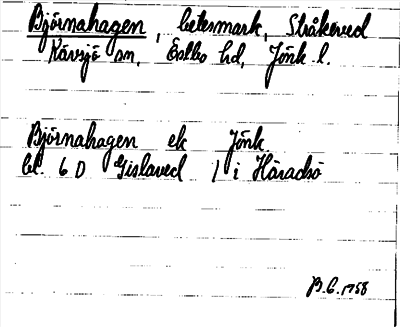 Björnahagen, betesmark, Stråkeved
Kävsjö sn, Östbo hd, Jönk. l.
Björnahagen ek Jönk
bl. 6 D Gislaved 1 i Häradsö
B.G. 1758